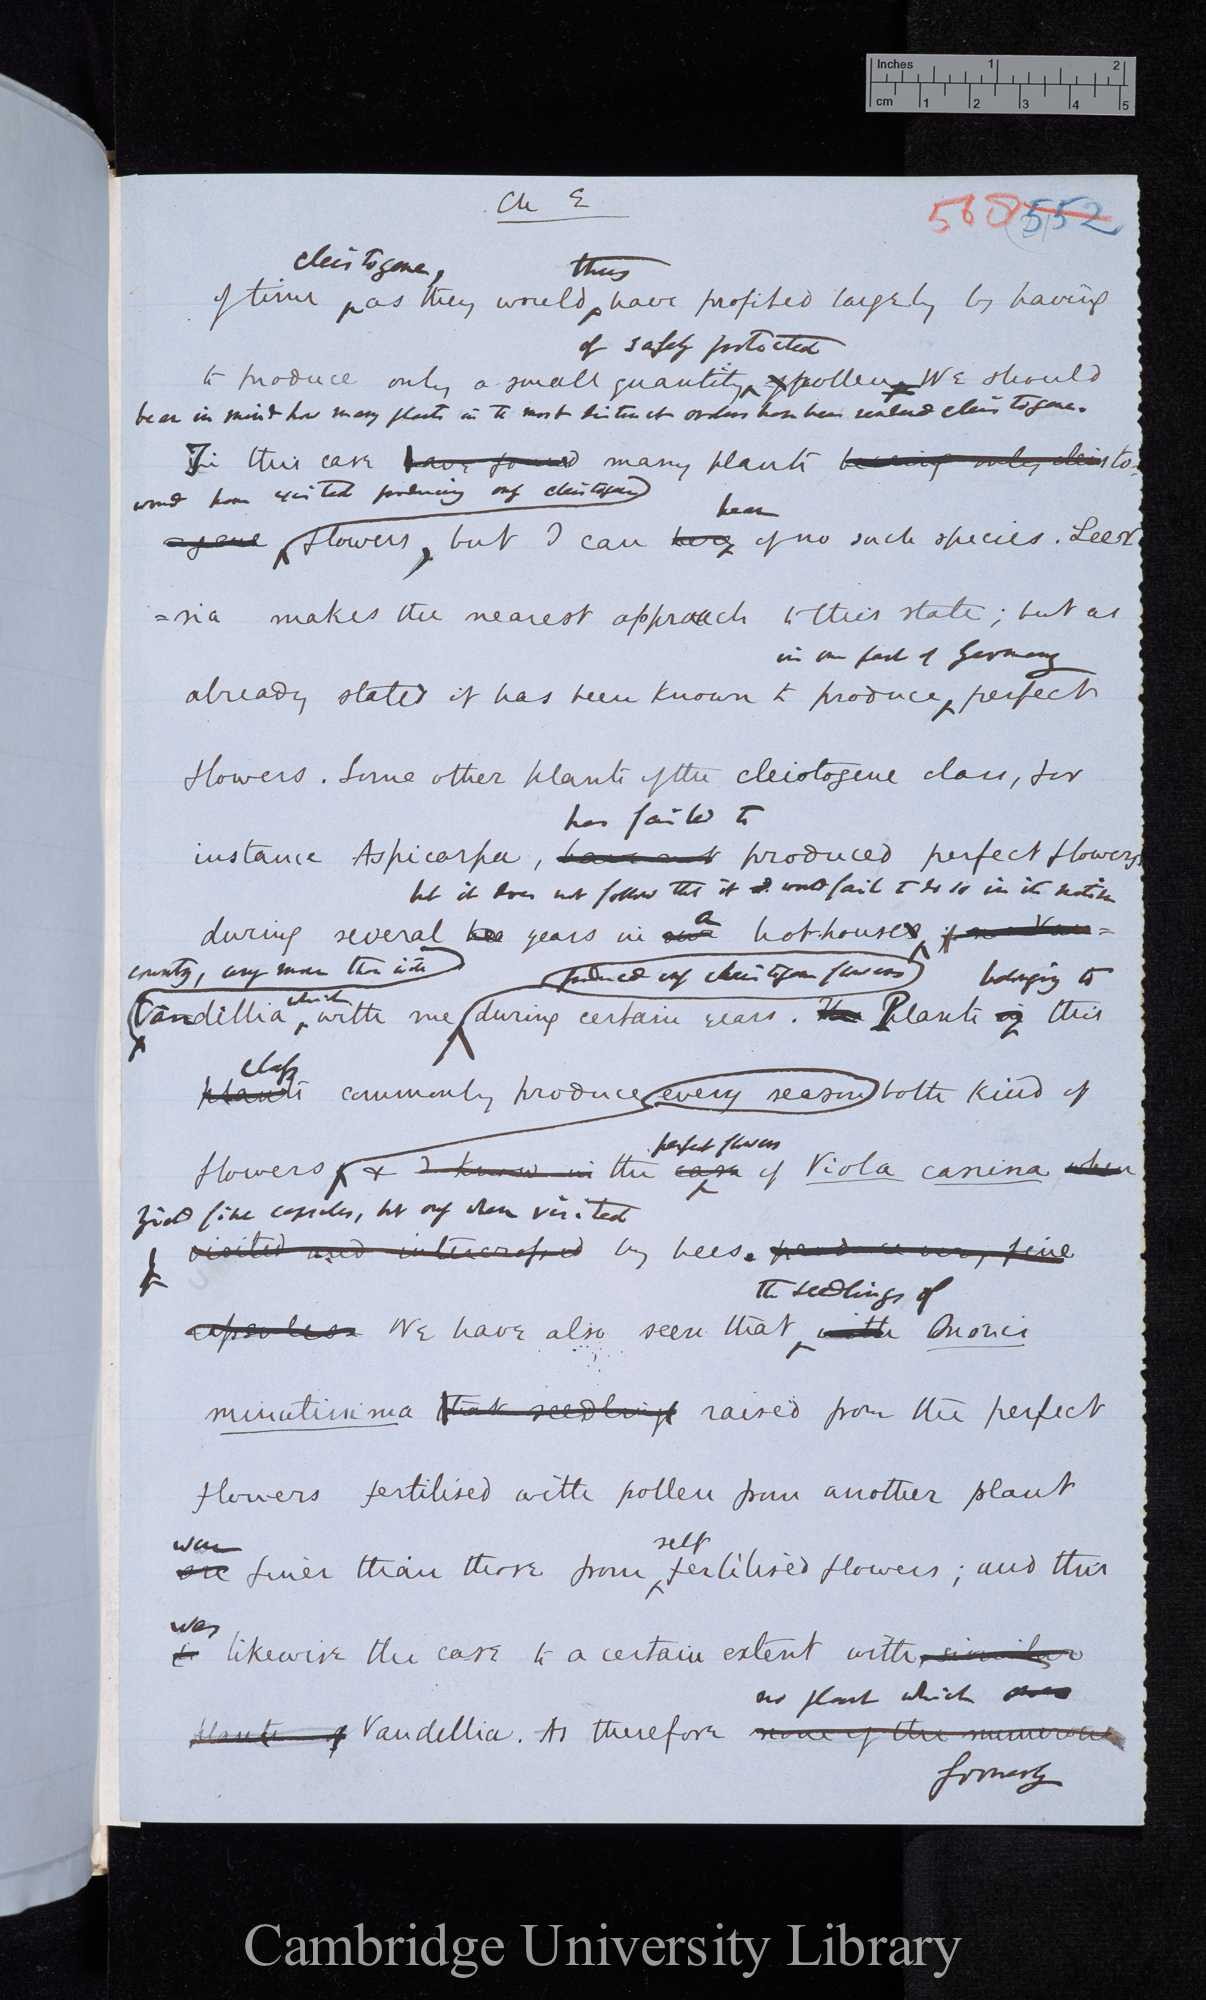 Inches 1 2
cm 1 2 3 4 5
Ch E
568 552
cleistogene, thus
of time as they would have profited largely by having
of safely protected
to produce only a small quantity of pollen. We should
bear in mind how many plants in the most distinct orders have been rendered cleistogene.
In this case have found many plants bearing only cleisto-
would have existed producing only cleistogene
gene flowers, but I can hear
of no such species. Leer
=sia makes the nearest approach to this state; but as
in one part of Germany
already stated it has been known to produce, perfect
flowers. Some other plants of the cleistogene class, for
has failed to
instance Aspicarpa, have not produced perfect flowers
but it does not follow that it would fail to do so in its native
during several years in a hothouse,
country, any more than with
produced only cleistogene flowers belonging to
Vandellia which with me during certain years. The Plants of this
class
plants commonly produce every season both kind of
perfect flowers
flowers, & I know in the case of Viola canina when
yield fine capsules, but only when visited
visited and intercrossed by bees. produce very fine
the seedlings of
capsules We have also seen that with Ononis
minutissima that seedlings raised from the perfect
flowers fertilised with pollen from another plant
were self
are finer than those from fertilised flowers; and this
was
is likewise the case to a certain extent with similar
no plant which
plants of Vandellia. As therefore none of the numerous
formerly
Cambridge University Library